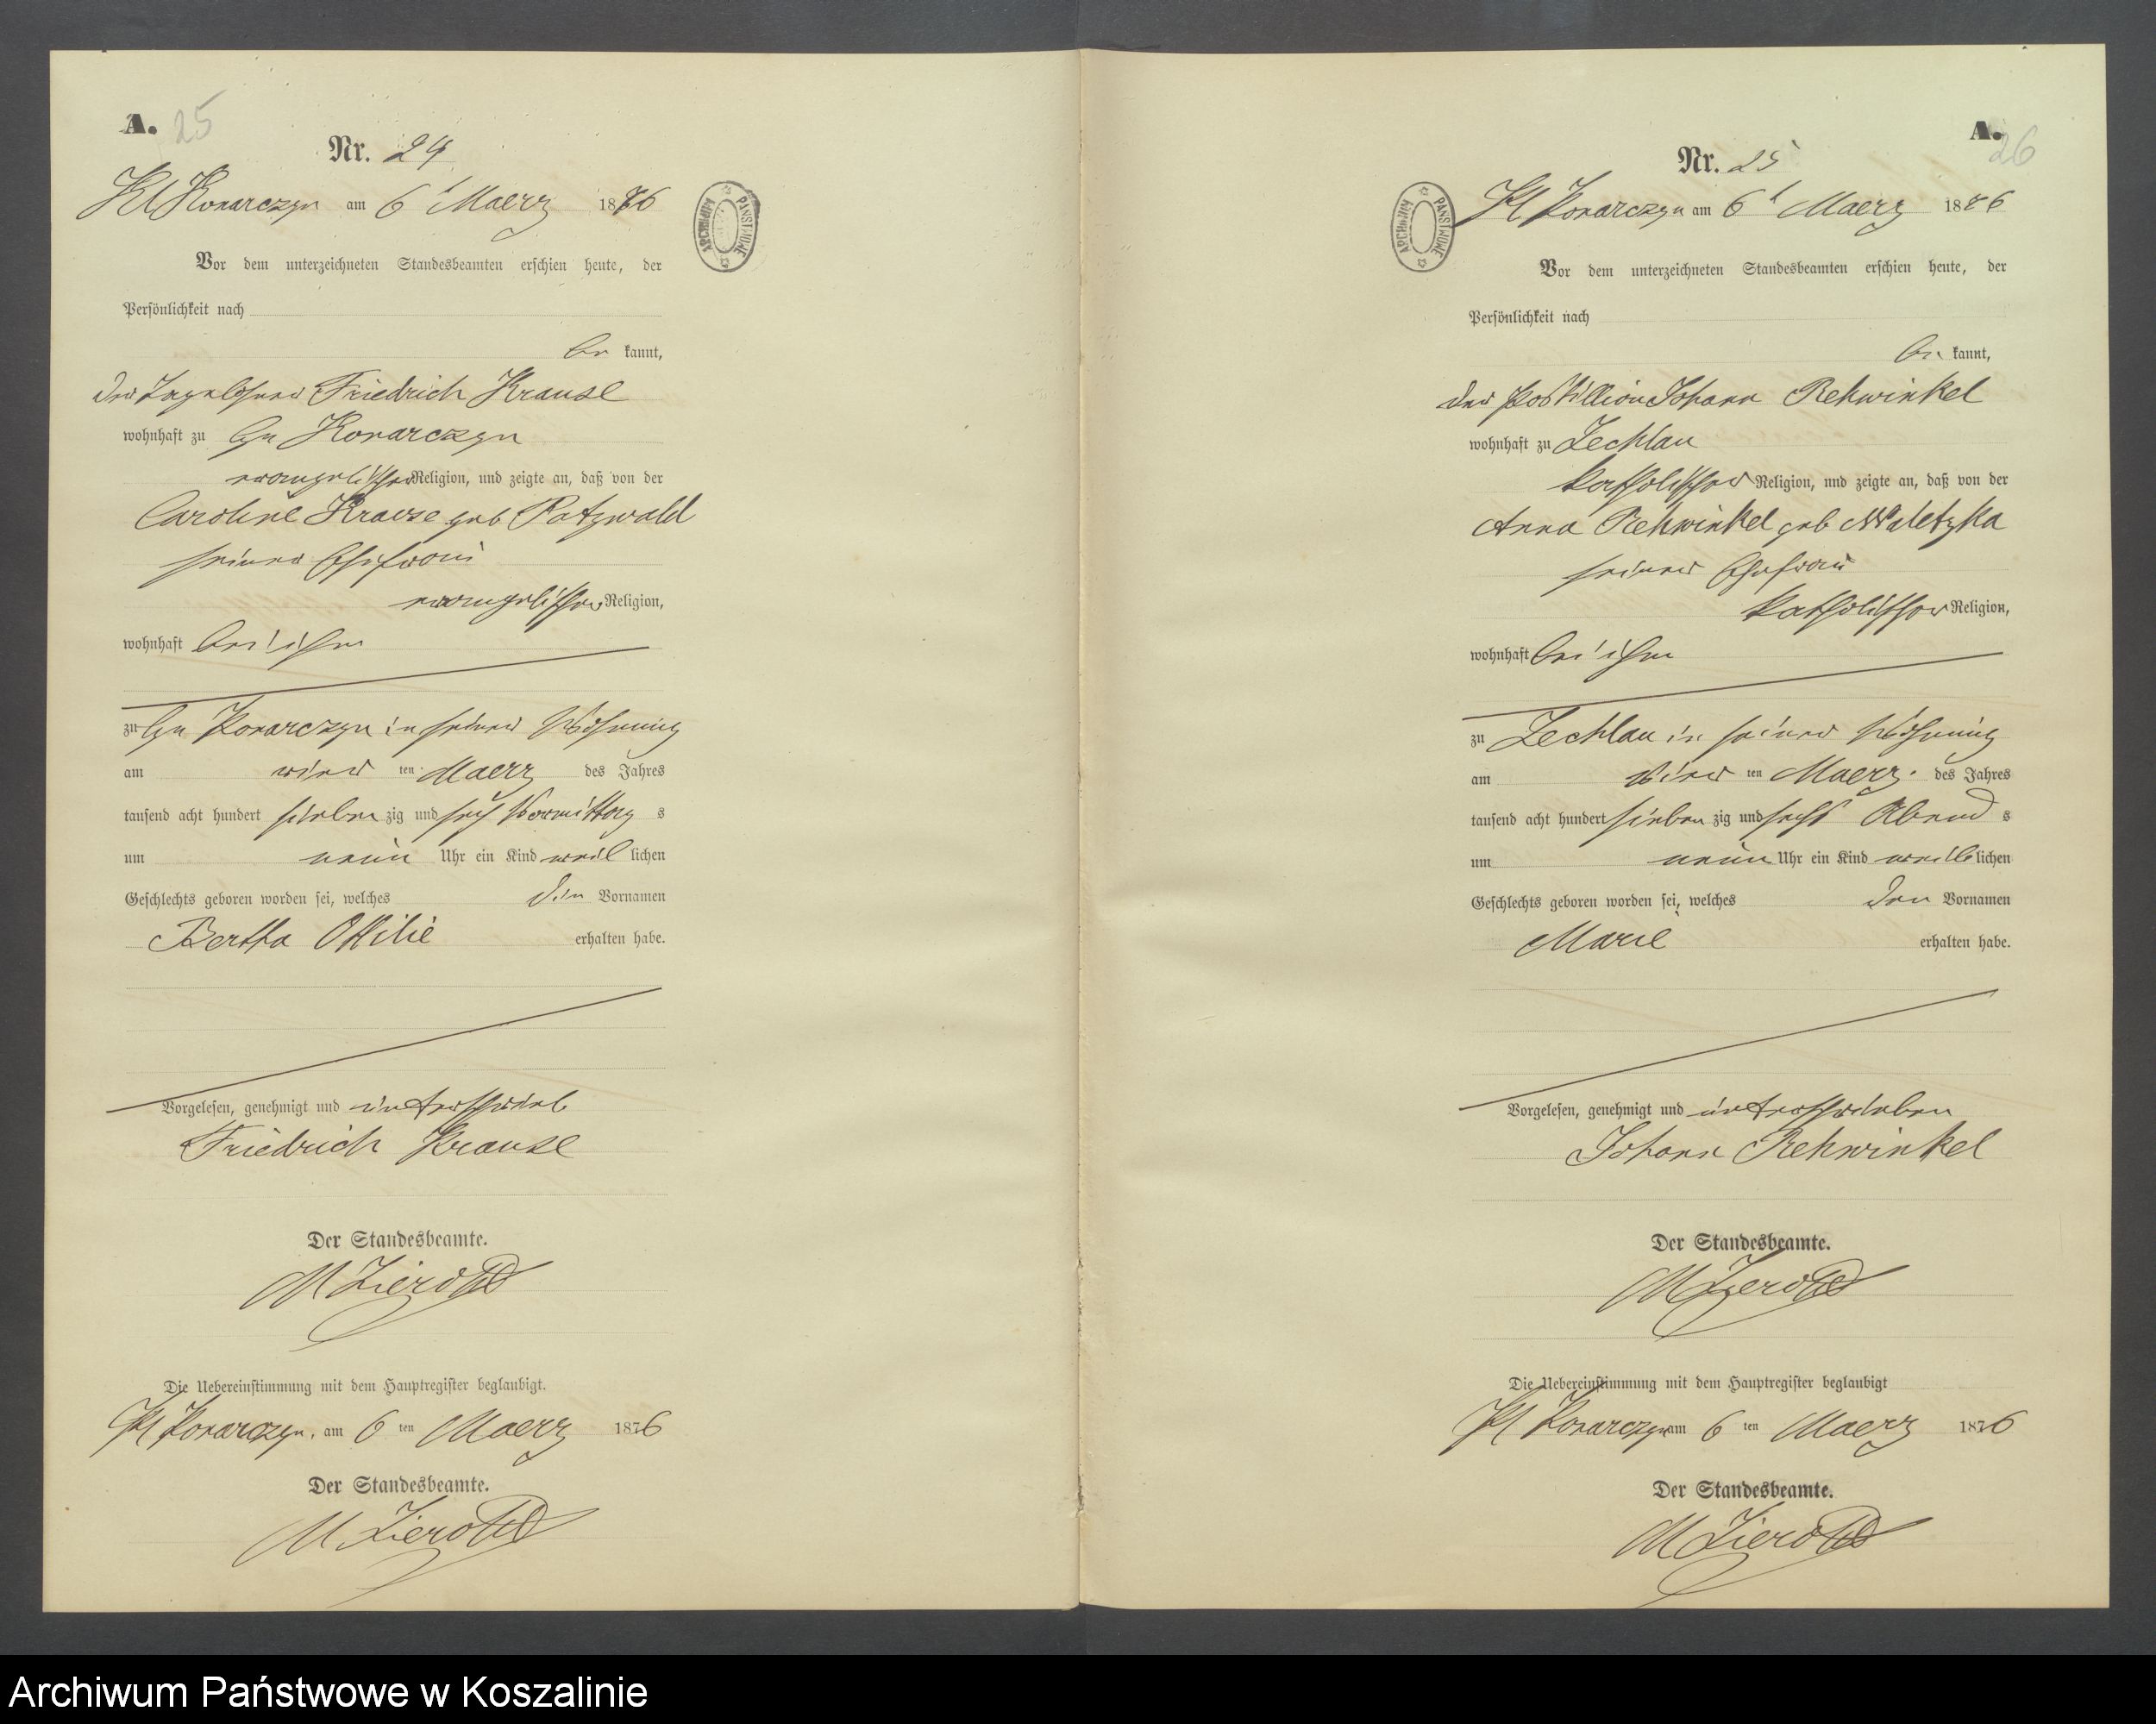 A. 25
Nr. 24
Kl Konarczyn am 6t Maerz 1876
ARCHIWUM PAŃSTWOWE
Vor dem unterzeichneten Standesbeamten erschien heute, der
Persönlichkeit nach
be kannt,
der Tagelöhner Friedrich Krause
wohnhaft zu Gr Konarczyn
evangelischer Religion, und zeigte an, daß von der
Caroline Krause geb Ratzwald
seiner Ehefrau
evangelischer Religion,
wohnhaft bei ihm
zu Gr Konarczyn in seiner Wohnung
am vier ten Maerz des Jahres
tausend acht hundert sieben zig und sechs Vormittag s
um neun Uhr ein Kind weib lichen
Geschlechts geboren worden sei, welches die Vornamen
Bertha Ottilie erhalten habe.
Vorgelesen, genehmigt und unterschrieb
Friedrich Krause
Der Standesbeamte.
M
Die Uebereinstimmung mit dem Hauptregister beglaubigt.
Kl Konarczyn, am 6 ten Maerz 1876
Der Standesbeamte.
M
A. 26
Nr. 25
Kl Konarczyn am 6t Maerz 1876
ARCHIWUM PAŃSTWOWE
Vor dem unterzeichneten Standesbeamten erschien heute, der
Persönlichkeit nach
be kannt,
der Postillion Johann Rehwinkel
wohnhaft zu Zechlau
katholischer Religion, und zeigte an, daß von der
Anna Rehwinkel geb
seiner Ehefrau
katholischer Religion,
wohnhaft bei ihm
zu Zechlau in seiner Wohnung
am vier ten Maerz des Jahres
tausend acht hundert sieben zig und sechs Abend s
um neun Uhr ein Kind weib lichen
Geschlechts geboren worden sei, welches den Vornamen
Marie erhalten habe.
Vorgelesen, genehmigt und unterschrieben
Johann Rehwinkel
Der Standesbeamte.
M
Die Uebereinstimmung mit dem Hauptregister beglaubigt
Kl Konarczyn am 6 ten Maerz 1876
Der Standesbeamte.
M
Archiwum Państwowe w Koszalinie